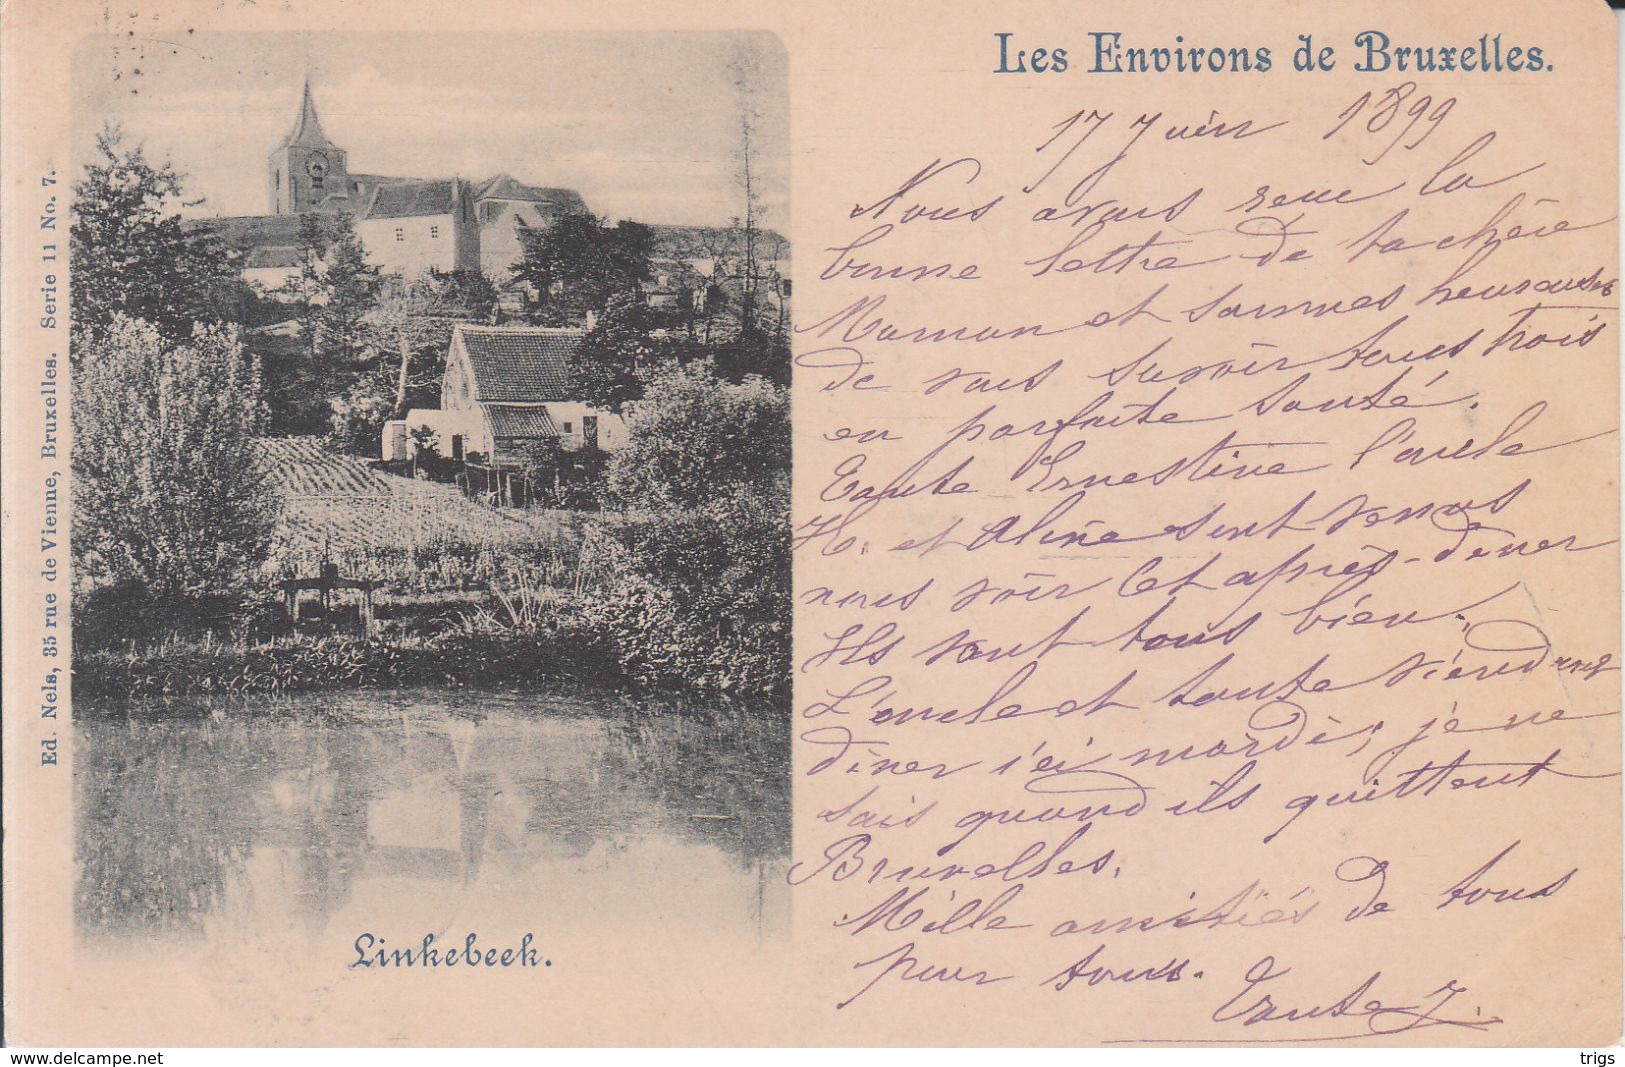 Les Environs de Bruxelles.
17 Juin 1899
Nous avons reçu la
bonne lettre de ta chère
Maman et sommes heureuses
de vous savoir tous trois
en parfaite santé.
Tante Ernestine l'oncle
H. et Aline sont venus
nous voir cet après-dîner
Ils vont tous bien.
L'oncle et tante viendront
dîner ici mardi; je ne
sais quand ils quittent
Bruxelles.
Mille amitiés de tous
pour tous.
Tante J.
Linkebeek.
Ed. Nels, 35 rue de Vienne, Bruxelles. Serie 11 No. 7.
www.delcampe.net
trigs